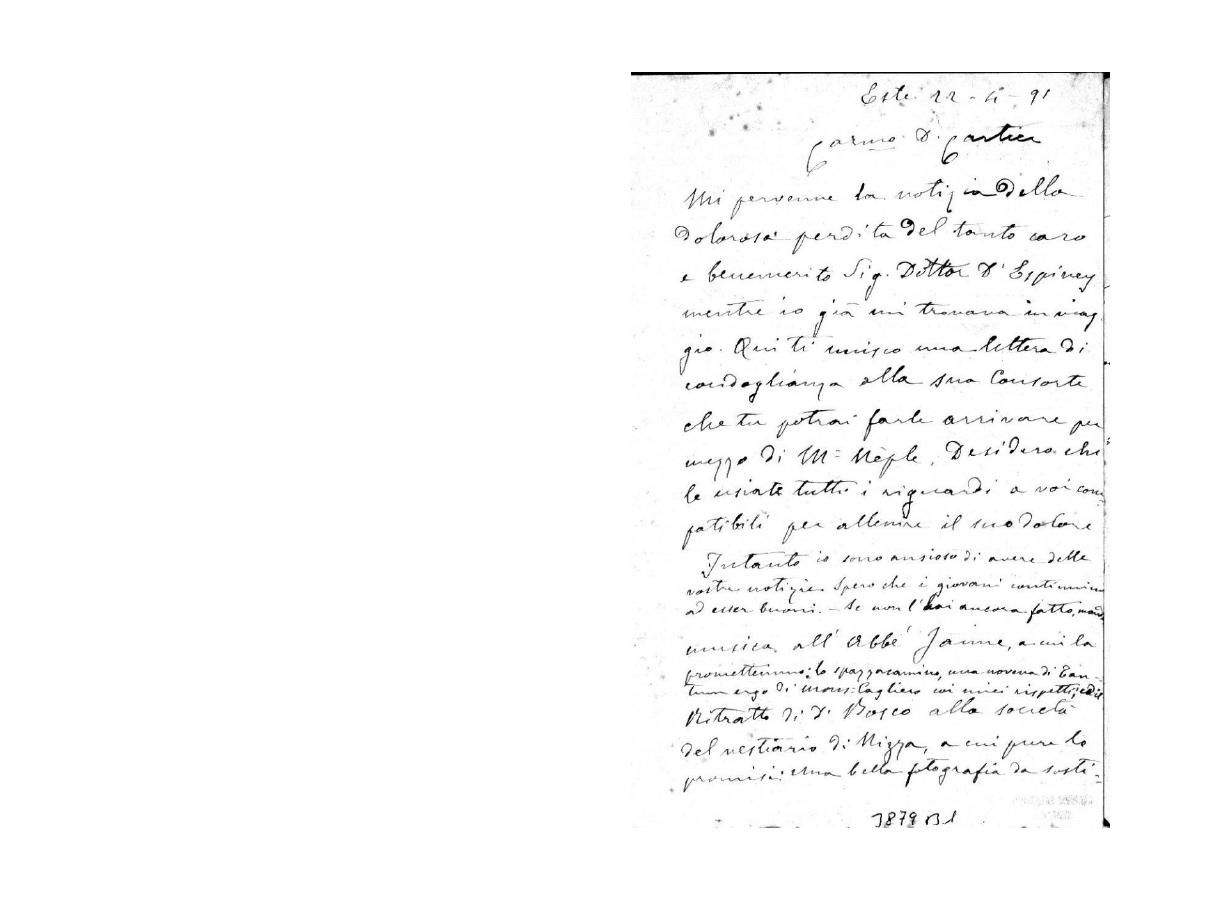 Este 22-4-91
Carmo D. Cartier
Mi pervenne la notizia della
dolorosa perdita del tanto caro
e benemerito Sig. Dottor D'Espiney
mentre io già mi trovava in viag-
gio. Qui ti unisco una lettera di
condoglianza alla sua Consorte
che tu potrai farle arrivare per
mezzo di Mr Nèple. Desidero che
le usiate tutti i riguardi a voi com-
patibili per allenire il suo dolore
Intanto io sono ansioso di avere delle
vostre notizie. Spero che i giovani continuino
ad esser buoni. - Se non l'hai ancora fatto, manda
musica all'Abbé Jaime, a cui la
promettemmo: lo spazzacamino, una novena di Tan-
tum ergo di mons. Cagliero coi miei rispetti; ed il
Ritratto di D. Bosco alla società
del vestiario di Nizza, a cui pure lo
promisi: Una bella fotografia da sosti-
3879 B1